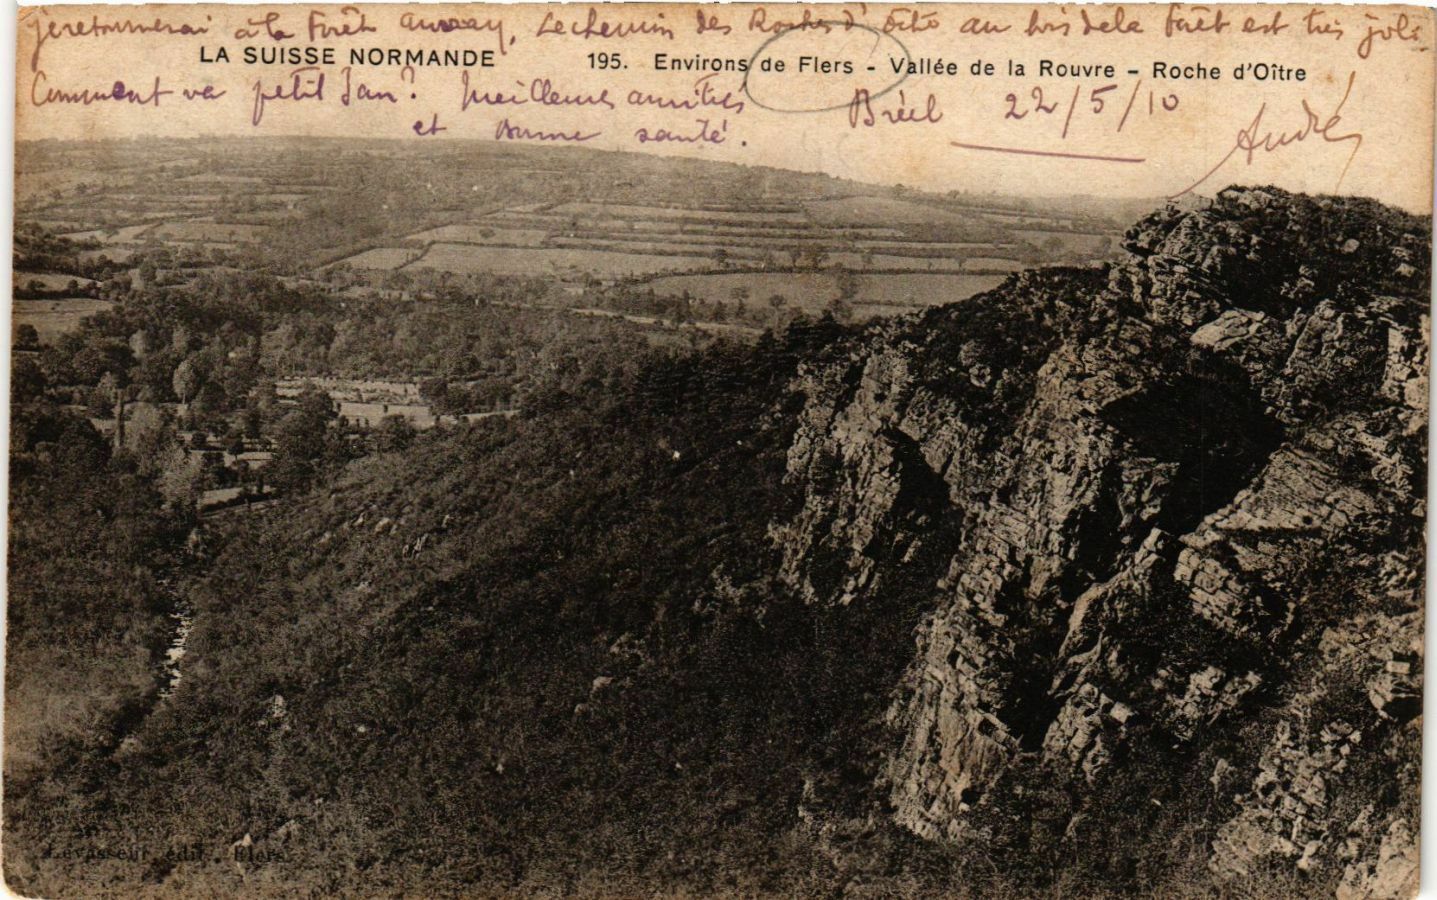 Je retournerai à la Forêt Auvray, Le chemin des Roches d'Oîtö au bois de la Forêt est très joli.
LA SUISSE NORMANDE 195. Environs de Flers - Vallée de la Rouvre - Roche d'Oître
Comment va petit Jan? Meilleures amitiés Bréel 22/5/10
et bonne santé. André
Levasseur édit. Flers